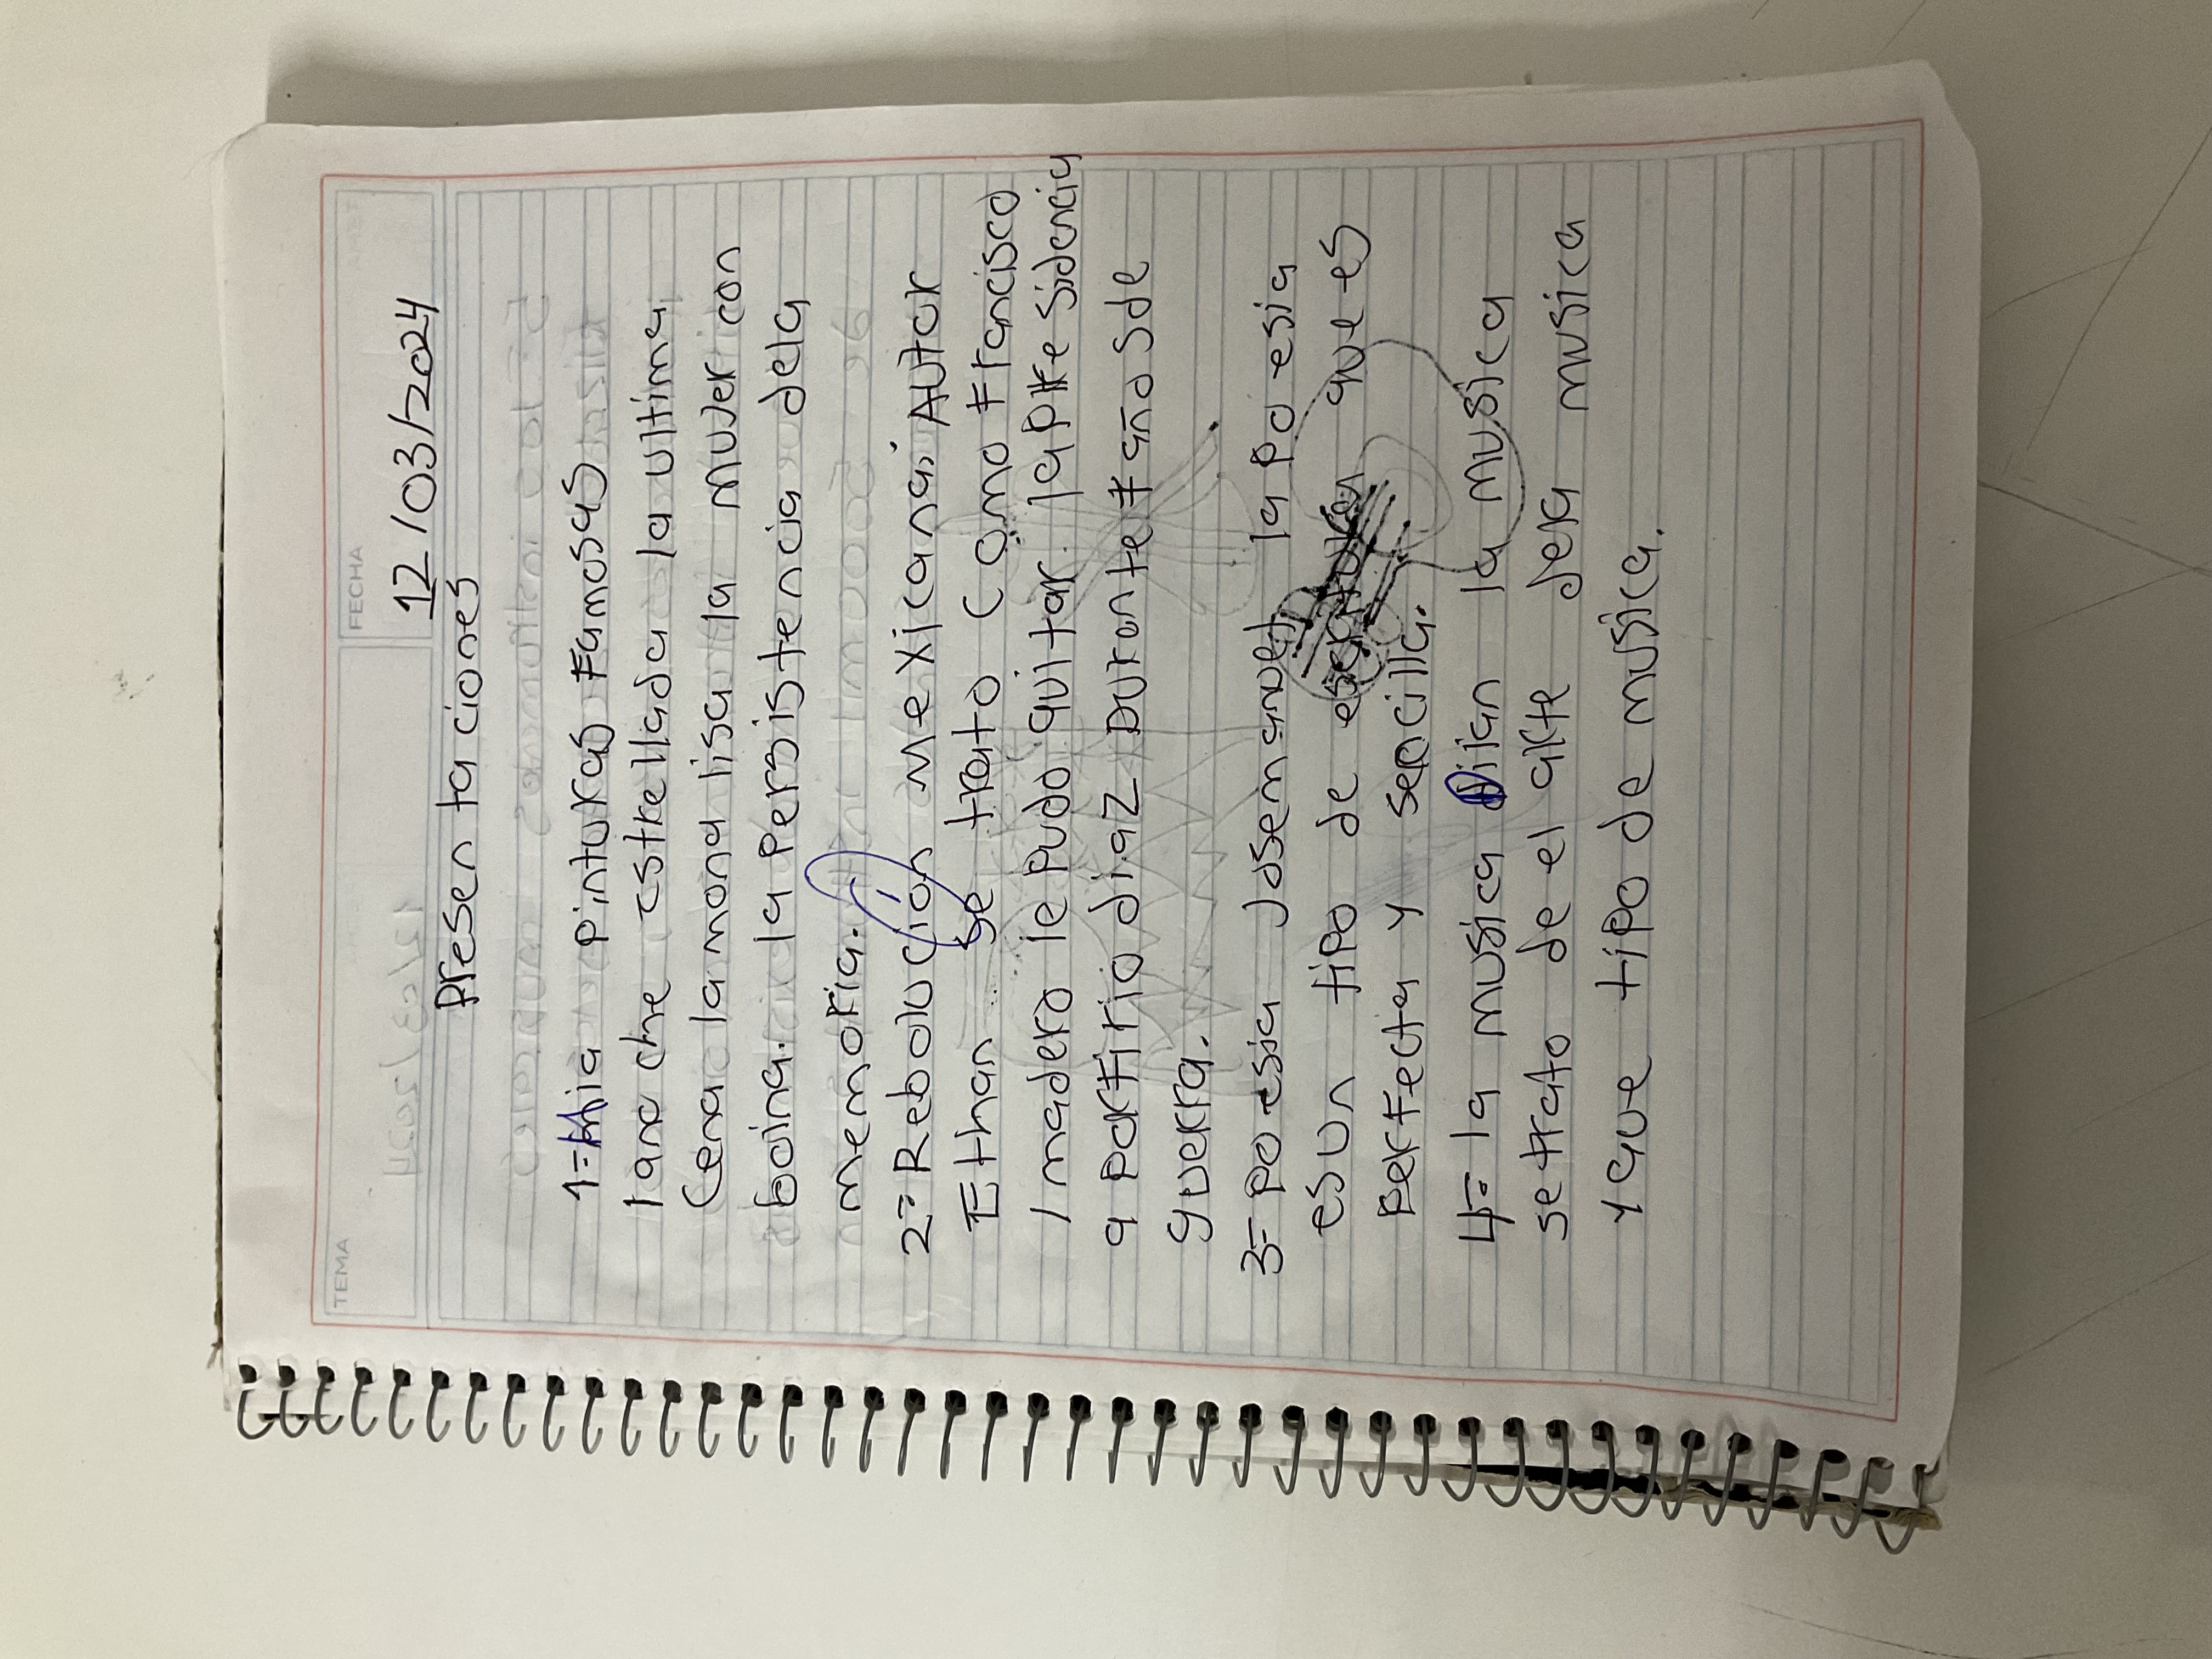 TEMA
FECHA
12/03/2024
Presen ta ciones
1= Mia Pinturas Famosas
lano che estrellada la ultima
Cena la mona lisa la muJer con
boina. la Persis tencia dela
memoria.
2= Rebolucion Mexicana: AUtor
Ethan se trato Como Francisco
I madero le Pudo quitar la Pre sidencia
a PorFirio diaz Durante # año S de
guerra.
3= Po esia Josemanuel la Po esia
es un tipo de que es
PerFecta y sencilla.
4= la musica Dilan la musica
se trato de el arte dera musica
y que tipo de musica.